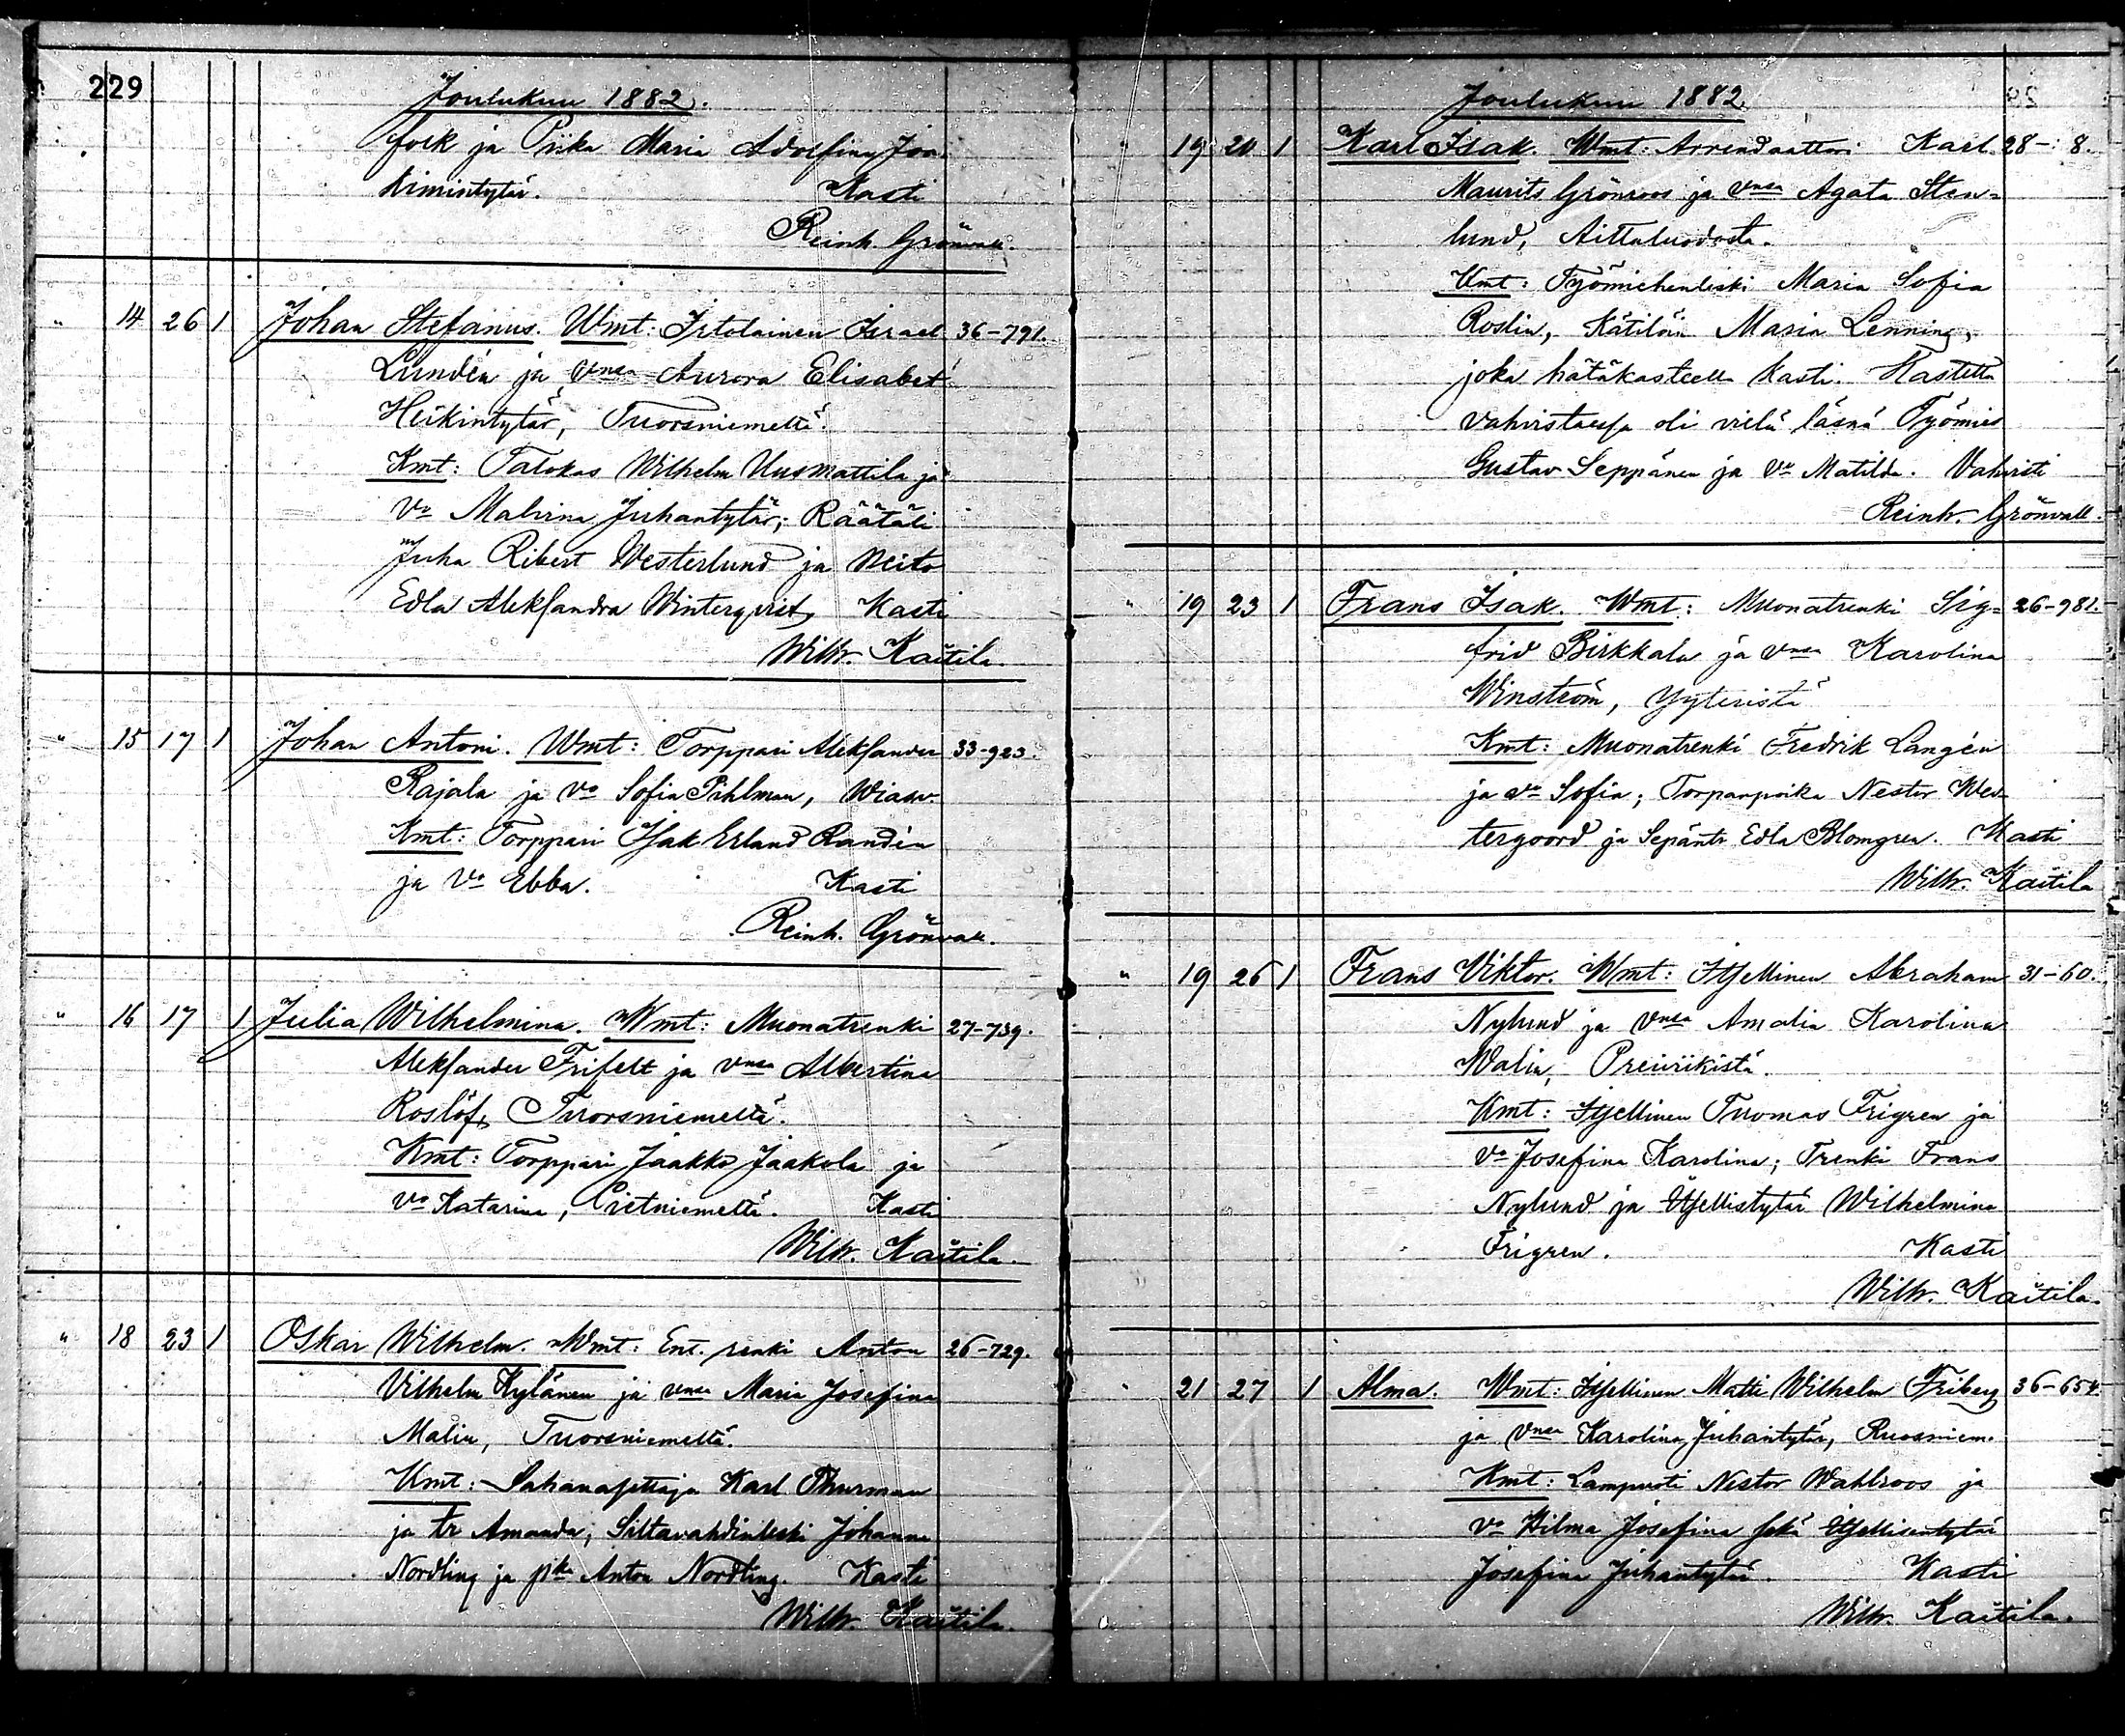 229
Joulukuu 1882.
folk ja Piika Maria Adolfina Joa-
kimintytär. Kasti
Reinh. Grönvall.
" 14 26 1 Johan Stefanus. Wmt: Itolainen Israel 36-791.
Lundén ja vnsa Aurora Elisabet
Heikintytär, Tuorsniemeltä.
Kmt: Talokas Wilhelm Uusmattila ja
Vo Malvina Juhantytär; Räätäli
Juha Robert Westerlund ja Neito
Edla Aleksandra Winterqvist, Kasti
Wilh. Kaitila.
" 15 17 1 Johan Antoni. Wmt: Torppari Aleksander 33-923.
Rajala ja Vo Sofia Pihlman, Wiasv.
Kmt: Torppari Isak Erland Randén
ja Vo Ebba. Kasti
Reinh. Grönvall.
" 16 17 1 Julia Wilhelmina. Wmt: Muonatrenki 27-739.
Aleksander Frifelt ja vnsa Albertina
Roslöf, Tuorsniemeltä.
Kmt: Torppari Jaakko Jaakola ja
vo Katarina, Pietniemeltä. Kasti
Wilh. Kaitila.
" 18 23 1 Oskar Wilhelm. Wmt: Ent. renki Anton 26-729.
Vilhelm Kylänen ja vnsa Maria Josefina
Malin, Tuorsniemeltä.
Kmt: Sahanasettaja Karl Thurman
ja tr Amanda; Siltavahdinleski Johanna
Nordling ja pka Anton Nordling. Kasti
Wilh. Kaitila.
Joulukuu 1882.
" 19 20 1 Karl Isak. Wmt: Arrendaattori Karl 28-8.
Maurits Grönroos ja vnsa Agata Sten-
lund, Aittaluodosta.
Kmt: Työmiehenleski Maria Sofia
Roslin, Kätilöin Maria Lenning,
joka hätäkasteella kasti. Kastetta
vahvistaessa oli vielä läsnä Työmies
Gustav Seppänen ja Vo Matilda. Vahvisti
Reinh. Grönvall.
" 19 23 1 Frans Isak. Wmt: Muonatrenki Sig- 26-981.
frid Birkkala ja vnsa Karolina
Winström, Yyteristä
Kmt: Muonatrenki Fredrik Langén
ja vo Sofia; Torparpoika Nestor Wes-
tergoord ja Sepäntr Edla Blomgren. Kasti
Wilh. Kaitila
" 19 26 1 Frans Viktor. Wmt: Itsellinen Abraham 31-60.
Nylund ja vnsa Amalia Karolina
Malin, Preiviikistä.
Kmt: Itsellinen Tuomas Frigren ja
Vo Josefina Karolina; Trenki Frans
Nylund ja Itsellistytär Wilhelmina
Frigren. Kasti
Wilh. Kaitila.
" 21 27 1 Alma. Wmt: Itsellinen Matti Wilhelm Friberg 36-654.
ja vnsa Karolina Juhantytär, Ruosniem.
Kmt: Lampuoti Nestor Wahlroos ja
vo Hilma Josefina sekä Itsellisentytär
Josefina Juhantytär. Kasti
Wilh. Kaitila.